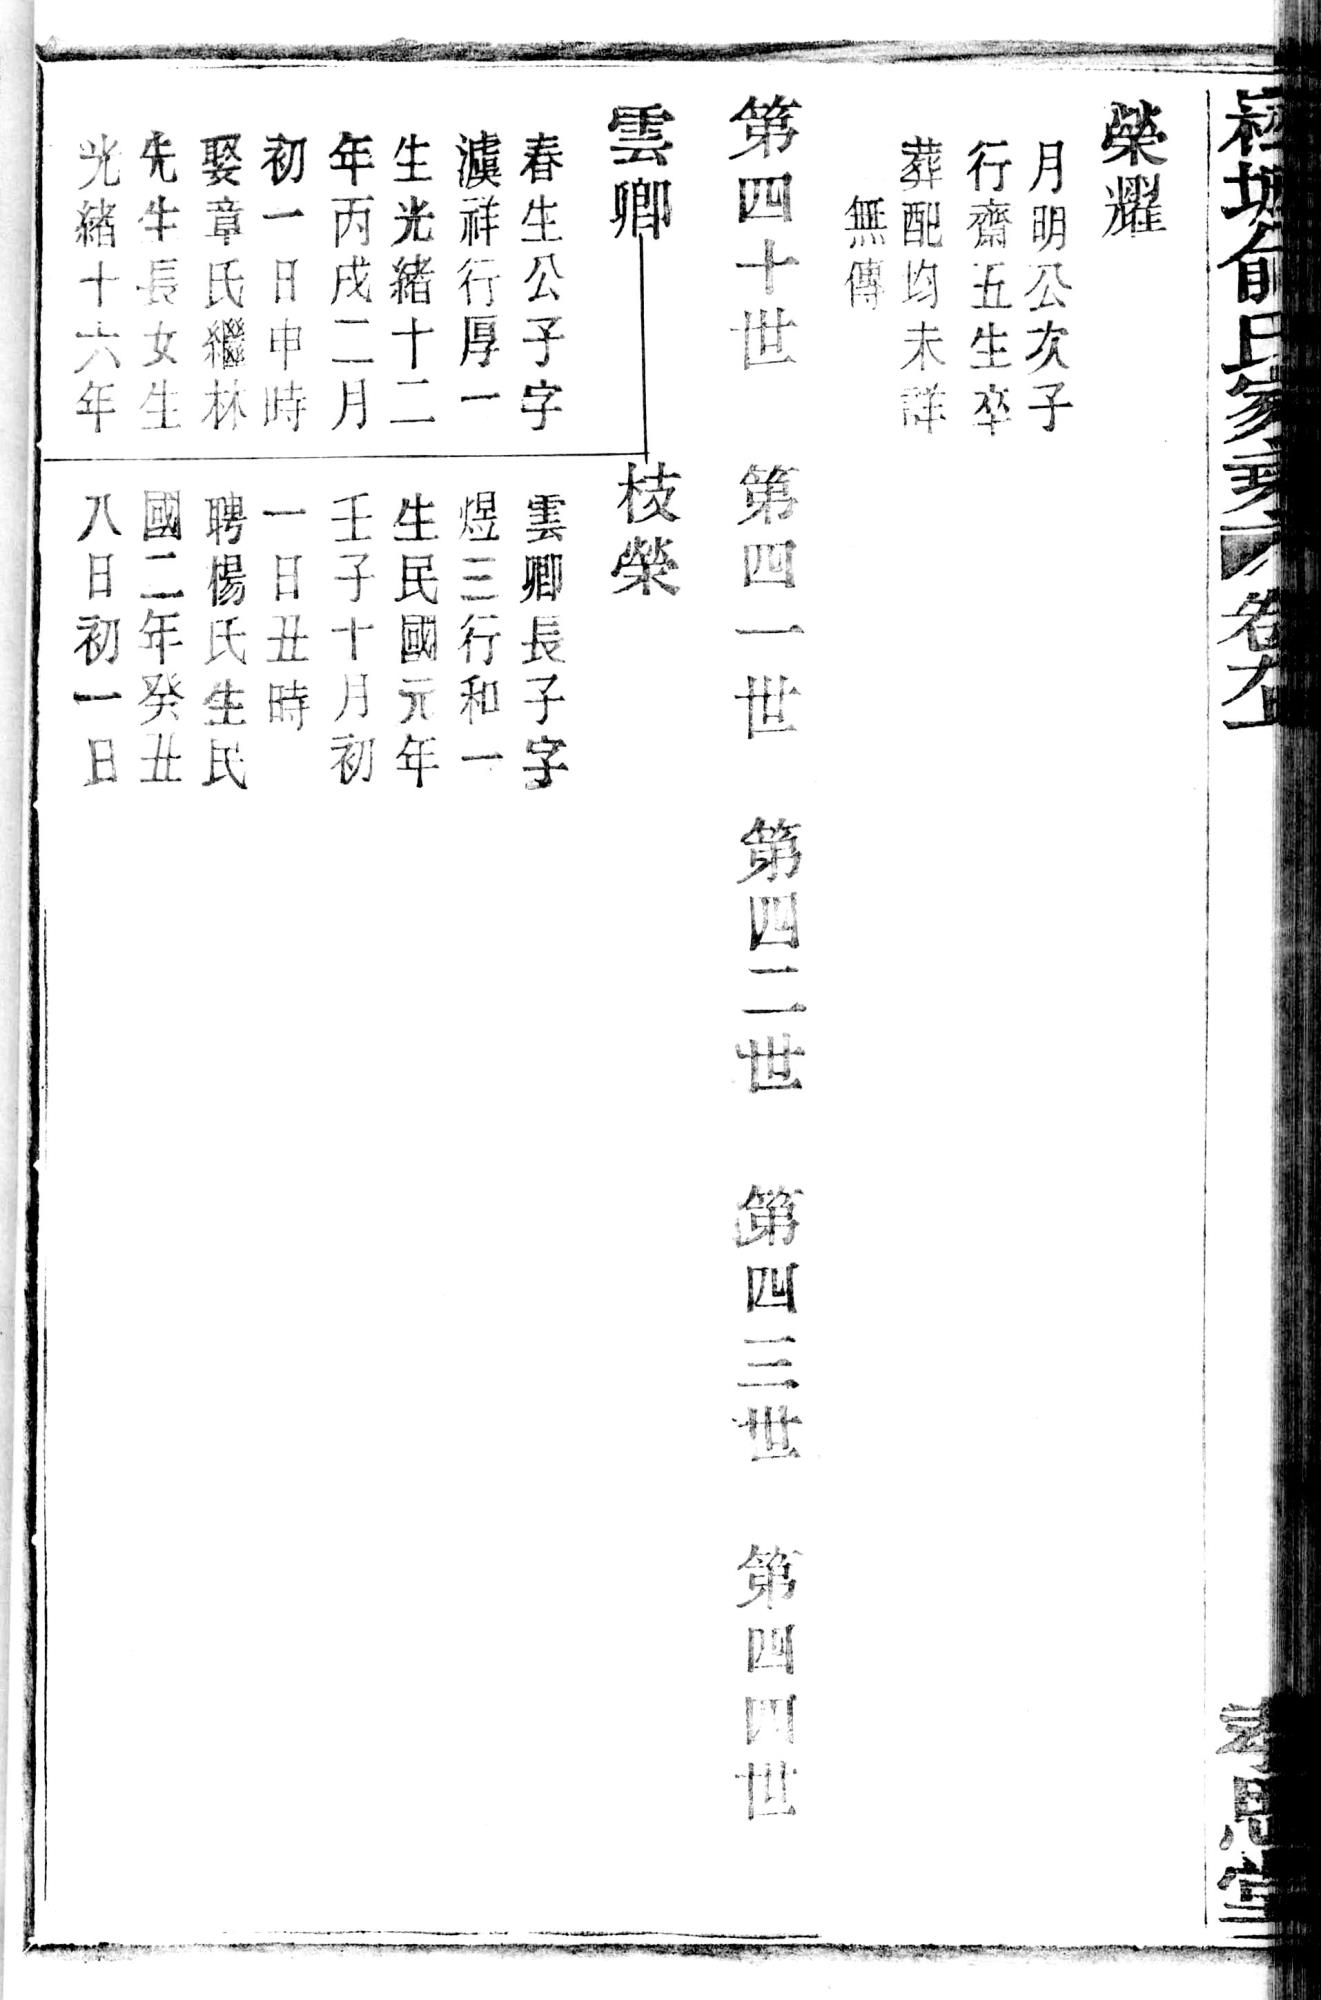 俞氏家乘
卷
思堂
榮耀
月明公次子
行齋五生卒
葬配均未詳
無傳
第四十世
第四一世
第四二世
第四三世
第四四世
雲卿
春生公子字
澞祥行厚一
生光緒十二
年丙戌二月
初一日申時
娶章氏繼林
先生長女生
光緒十六年
枝榮
雲卿長子字
煜三行和一
生民國元年
壬子十月初
一日丑時
聘楊氏生民
國二年癸丑
八日初一日